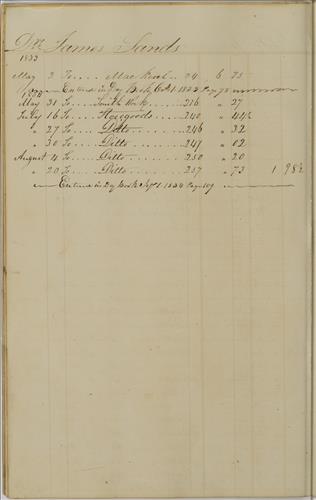 Dr. James Sands
1833
May 2 To .... Mackrel .. 24 6 75
Entered in Day Book Oct 1 1833 Page 78
1834
May 31 To ..... South Work .... 216 " 27
July 16 To .... Hoegoods .... 240 " 44½
" 27 To .... Ditto .... 246 " 32
" 30 To .... Ditto .... 247 " 02
August 4 To .... Ditto .... 250 " 20
" 20 To .... Ditto .... 257 " 73 1 98½
Entered in Day Book Sept 1 1834 Page 109